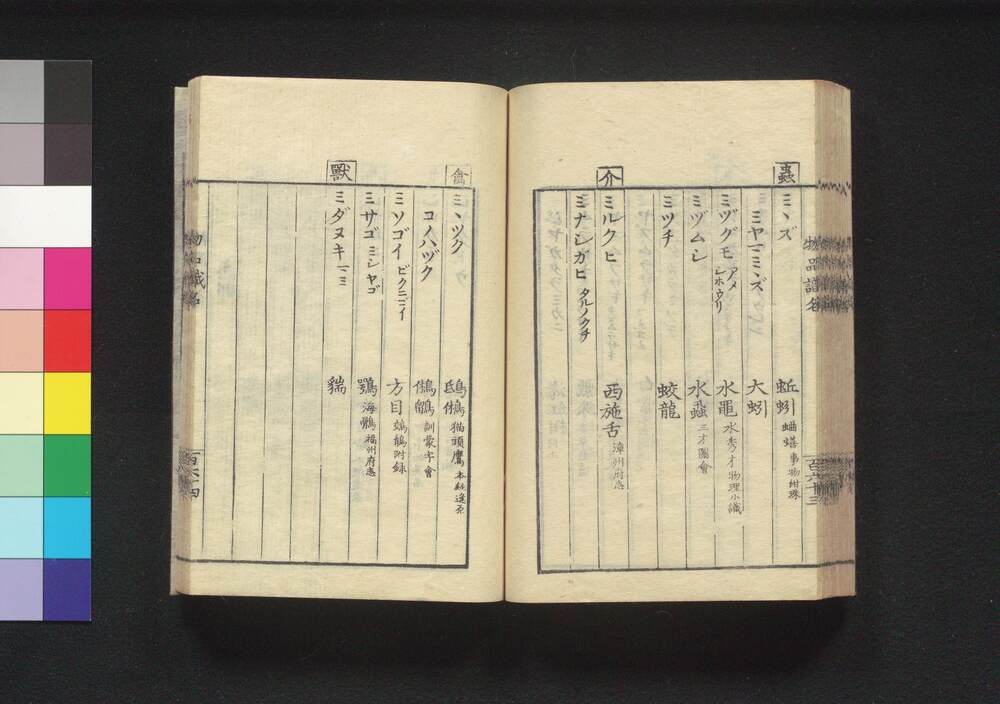 蟲
ミヽズ 蚯蚓 蝠蟮 事物紺珠
ミヤマミヽズ 大蚓
ミヅグモ アメ シホウリ 水黽 水秀才 物理小識
ミヅムシ 水蟲 三才圖會
ミツチ 蛟龍
介
ミルクヒ 西施舌 漳州府志
ミナシガヒ タルノクチ
物品識名
百六十三
禽
ミヽツク 鴟鵂 猫頭鷹 本經逢原
コノハヅク 鵂鶹 訓蒙字會
ミソゴイ ビクニゴイ 方目 鴗鶄附録
ミサゴ ミシヤゴ 鶚 海鵰 福州府志
獸
ミダヌキ マミ 貒
物品識名
百六十四